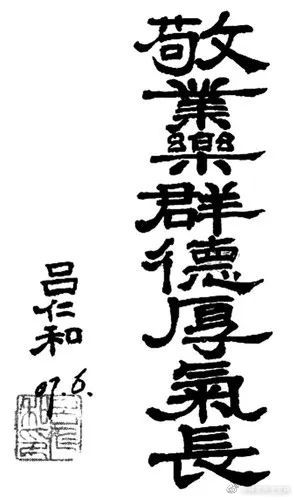 敬業樂群德厚氣長
吕仁和
97.6.